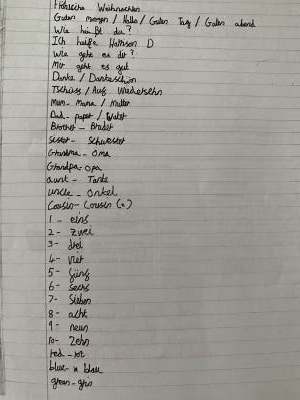 Fröhliche Weihnachten
Guten morgen / Hallo / Guten Tag / Guten abend
Wie heißt du?
Ich heiße Harrison D
Wie geht es dir?
Mir geht es gut
Danke / Dankeschön
Tschüss / Auf Wiedersehn
Mum - Mama / Mutter
Dad - papa / Vater
Brother - Bruder
sister - Schwester
Grandma - Oma
Grandpa - Opa
aunt - Tante
uncle - Onkel
Cousin - Cousin (e)
1 - eins
2 - zwei
3 - drei
4 - vier
5 - fünf
6 - sechs
7 - sieben
8 - acht
9 - neun
10 - Zehn
red - rot
blue - blau
green - grün